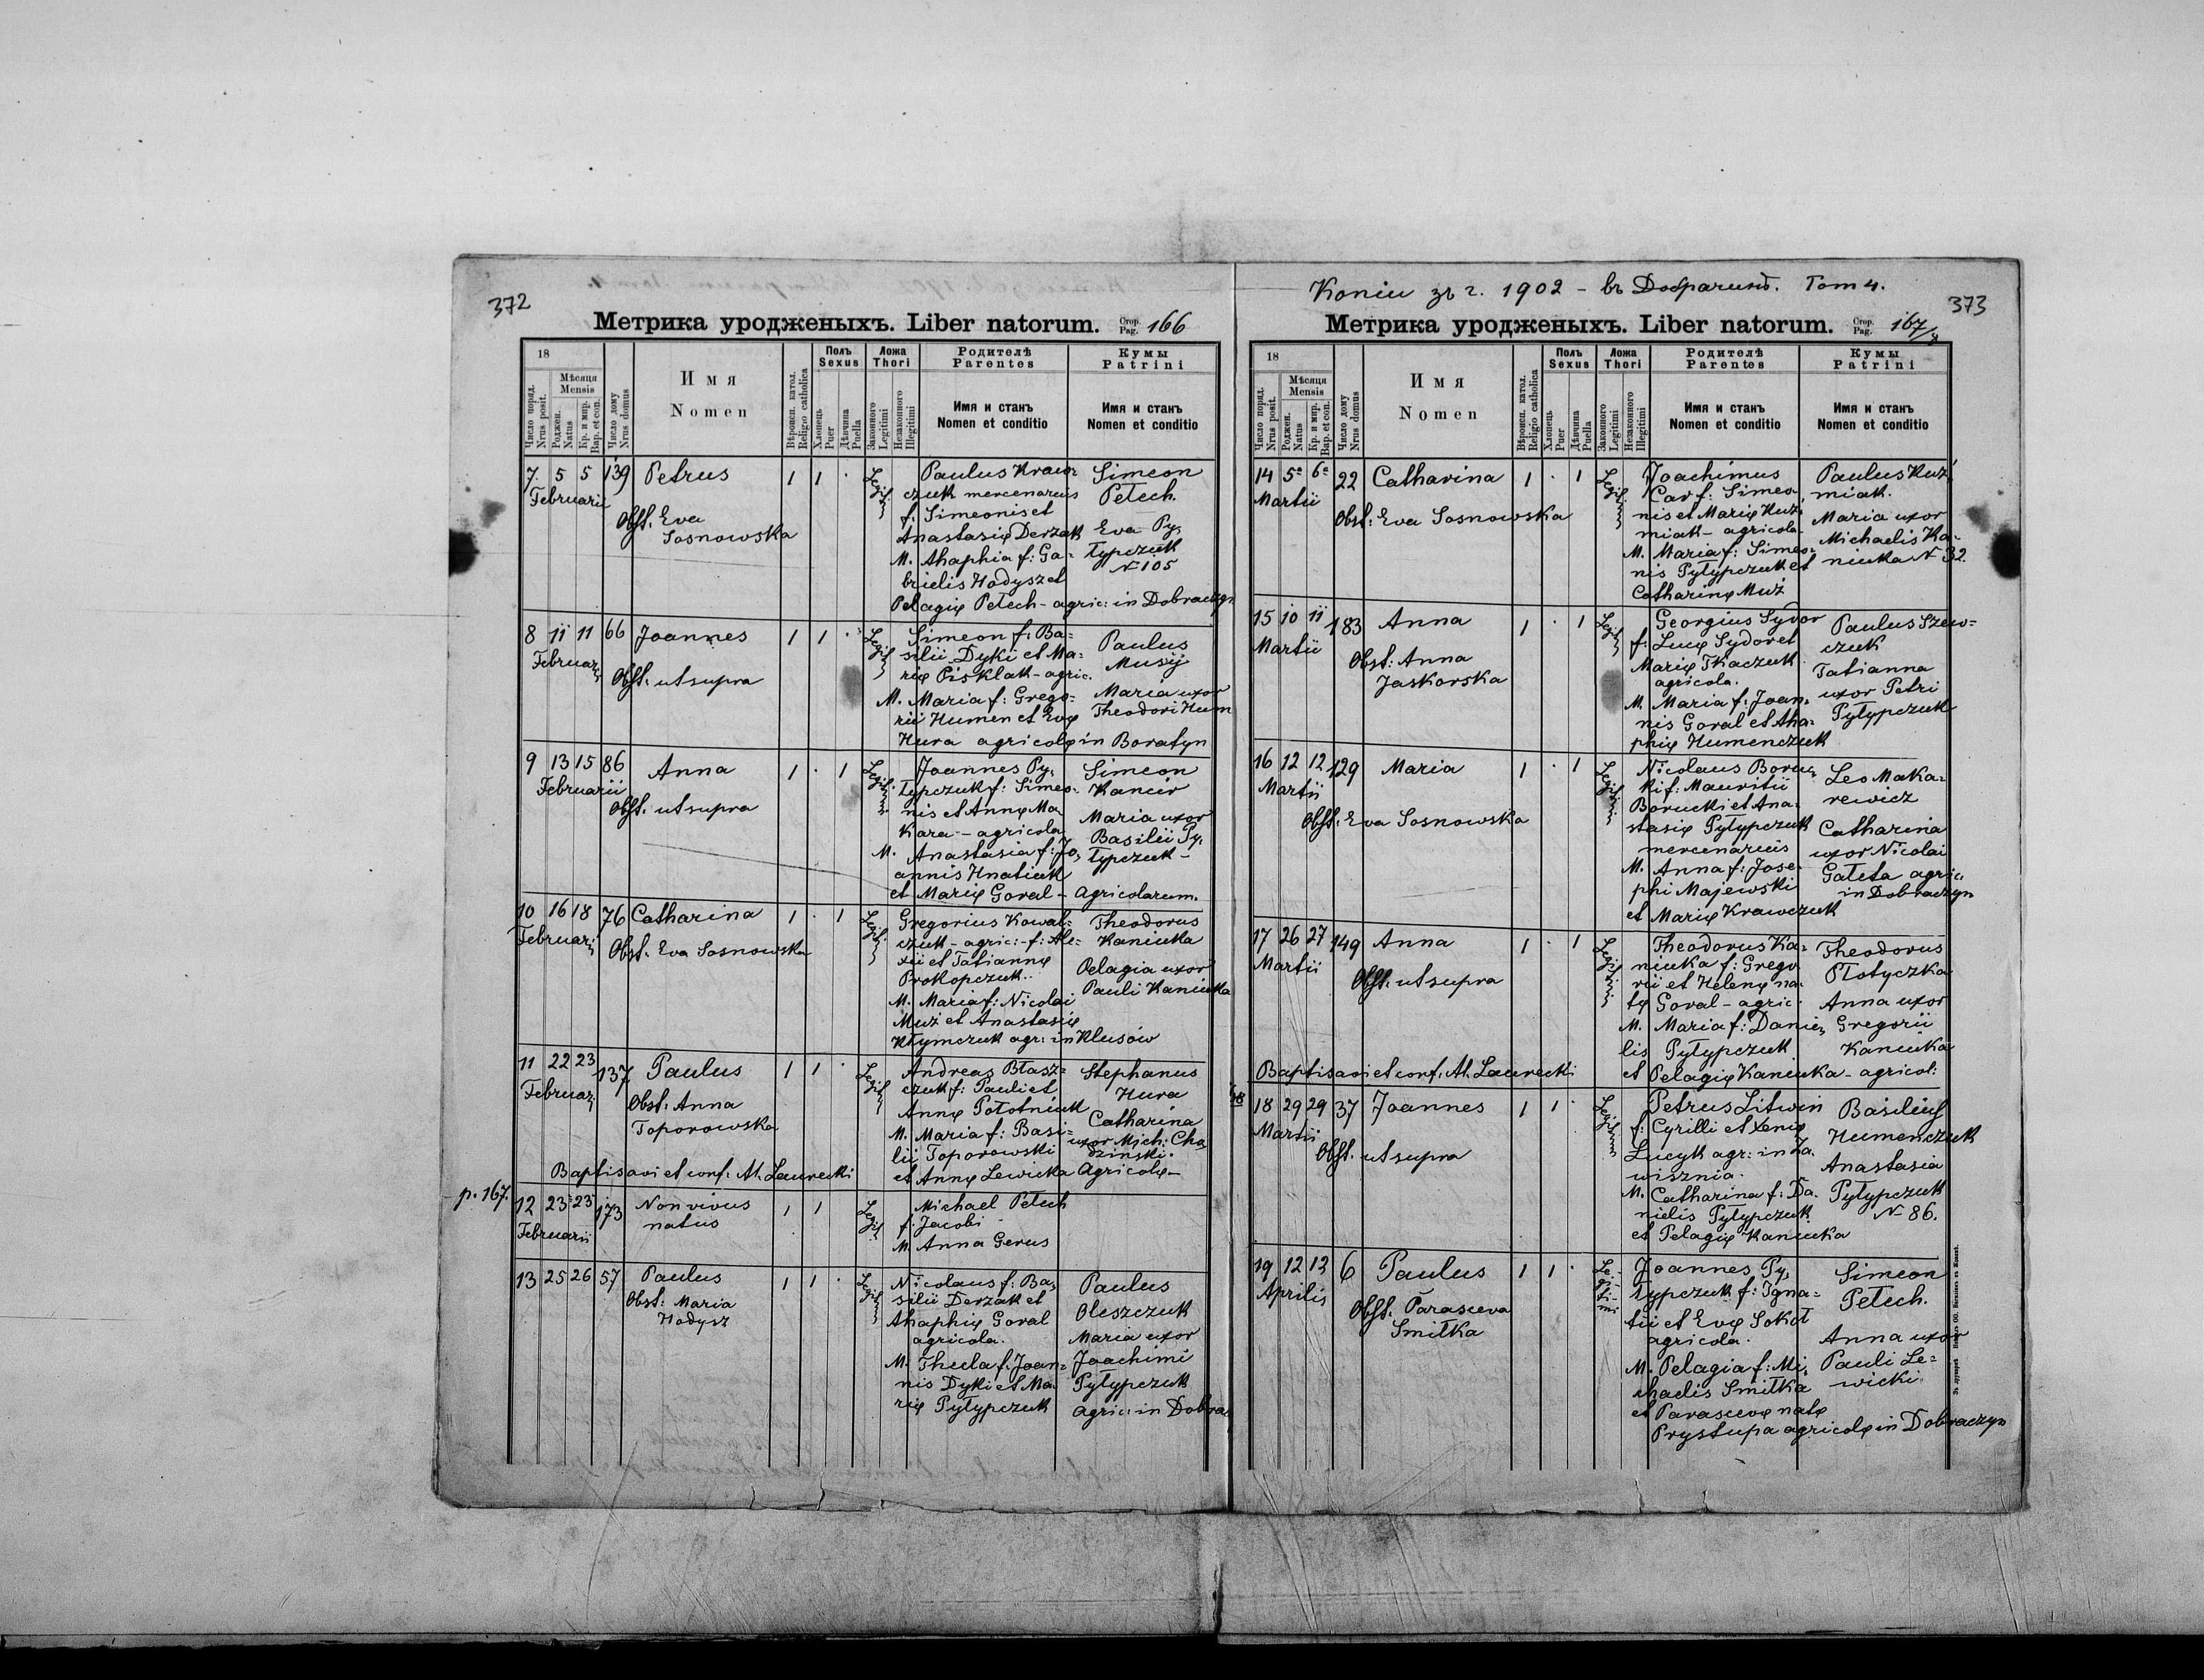 372
Метрика уродженыхъ. Liber natorum. Стор. Pag. 166
18
Число поряд.
Nrus posit.
Мѣсяця
Mensis
Роджен.
Natus
Кр. и мир.
Bap. et con.
Число дому
Nrus domus
Имя
Nomen
Вѣроисп. катол.
Religio catholica
Полъ
Sexus
Хлопець
Puer
Дѣвчина
Puella
Ложа
Thori
Законного
Legitimi
Незаконного
Illegitimi
Родителѣ
Parentes
Имя и станъ
Nomen et conditio
Кумы
Patrini
Имя и станъ
Nomen et conditio
7. 5 5 139 Petrus 1 1 · Legit.
Februarii
Obst. Eva
Sosnowska
Paulus Kraw=
czuk mercenarius
f. Simeonis et
Anastasię Derzak
M. Ahaphia f: Ga=
brielis Hodysz et
Pelagię Petech - agric: in Dobraczyn
Simeon
Petech.
Eva Py,
typczuk
N 105
8 11 11 66 Joannes 1 1 · Legit
Februar,
Obst. ut supra
Simeon f: Ba=
silii Dyki et Ma=
rię Pisklak - agric.
M. Maria f: Grego=
rii Humen et Evę
Hura agricolę in Boratyn
Paulus
Musij
Maria uxor
Theodori Hum
9 13 15 86 Anna 1 · 1 Legit
Februarii
Obst. ut supra
Joannes Py,
typczuk f: Simeo=
nis et Annę Ma
kara - agricola
M. Anastasia f: Jo,
annis Hnatiuk
et Marię Goral - Agricolarum.
Simeon
Kancir
Maria uxor
Basilii Py,
typczuk -
10 16 18 76 Catharina 1 · 1 Legit
Februarj
Obst. Eva Sosnowska
Gregorius Kowal=
czuk - agric: - f: Ale=
xii et Tatiannę
Prokopczuk..
M. Maria f: Nicolai
Muż et Anastasię
Kłymczuk agr: in Klusów
Theodorus
Kaniuka
Pelagia uxor
Pauli Kaniuka
11 22 23 137 Paulus 1 1 · Legit
Februar,
Obst: Anna
Toporowska
Andreas Błasz=
czuk f: Pauli et
Annę Połotniuk
M. Maria f: Basi=
lii Toporowski
et Annę Lewicka Agricolę -
Stephanus
Hura
Catharina
uxor Mich: Cha,
dzinski.
Baptisavi et conf. Al. Laurecki
p. 167.
12 23 23 173 Non vivus 1 1 Legit.
natus
Februarii
Michael Petech
f: Jacobi
M. Anna Gerus
13 25 26 57 Paulus 1 1 · Legit
Obst: Maria
Hodysz
Nicolaus f: Ba,
silii Derzak et
Ahaphię Goral
agricola.
M. Thecla f. Joan=
nis Dyki et Ma
rię Pyłypczuk
Paulus
Oleszczuk
Maria uxor
Joachimi
Pyłypczuk
agric: in Dobrac
Копіи зъ г. 1902 - въ Добрачинѣ. Том 4.
373
Метрика уродженыхъ. Liber natorum. Стор. Pag. 167/4
18
Число поряд.
Nrus posit.
Мѣсяця
Mensis
Роджен.
Natus
Кр. и мир.
Bap. et con.
Число дому
Nrus domus
Имя
Nomen
Вѣроисп. катол.
Religio catholica
Полъ
Sexus
Хлопець
Puer
Дѣвчина
Puella
Ложа
Thori
Законного
Legitimi
Незаконного
Illegitimi
Родителѣ
Parentes
Имя и станъ
Nomen et conditio
Кумы
Patrini
Имя и станъ
Nomen et conditio
14 5 6 22 Catharina 1 · 1 Legit.
Martii
Obst: Eva Sosnowska
Joachimus
Car f: Simeo,
nis et Marię Kuź,
miak - agricola
M. Maria f: Simeo=
nis Pyłypczuk et
Catharinę Muż
Paulus Kuź,
miak.
Maria uxor
Michaelis Ka-
niuka N 32.
15 10 11 183 Anna 1 · 1 Legit
Martii
Obst: Anna
Jaskorska
Georgius Sydor
f: Lucę Sydor et
Marię Tkaczuk
agricola.
M. Maria f: Joan=
nis Goral et Aha=
phię Humenczuk
Paulus Szew=
czuk
Tatianna
uxor Petri
Pyłypczuk
16 12 12 129 Maria 1 · 1 Legit
Martii
Obst. Eva Sosnowska
Nicolaus Boruc,
ki f: Mauritii
Borucki et Ana=
stasię Pyłypczuk
mercenarius
M. Anna f: Jose=
phi Majewski
et Marię Krawczuk
Leo Maka=
rewicz
Catharina
uxor Nicolai
Gałeta agric:
in Dobraczyn
17 26 27 149 Anna 1 · 1 Legiti
Martii
Obst. ut supra
Theodorus Ka=
niuka f: Grego
rii et Helenę na=
tę Goral - agric:
M. Maria f: Danie,
lis Pyłypczuk
et Pelagię Kaniuka - agricol:
Theodorus
Płotyczka
Anna uxor
Gregorii
Kaniuka
Baptisavi et conf. Al. Laurecki
18 29 29 37 Joannes 1 1 · Legit
Martii
Obst. ut supra
Petrus Litwin
f: Cyrilli et Xenię
Lucyk agr: in Za
wisznia.
M. Catharina f: Da=
nielis Pyłypczuk
et Pelagię Kaniuka
Basilius
Humenczuk
Anastasia
Pyłypczuk
N 86.
19 12 13 6 Paulus 1 1 · Legitimi
Aprilis
Obst. Parasceva
Smiłka
Joannes Py,
łypczuk f: Igna=
tii et Evę Sokoł
agricola.
M. Pelagia f: Mi,
chaelis Smiłka
et Parascevę natę
Prystupa agricolę in Dobraczyn
Simeon
Petech.
Anna uxor
Pauli Le=
wicki.